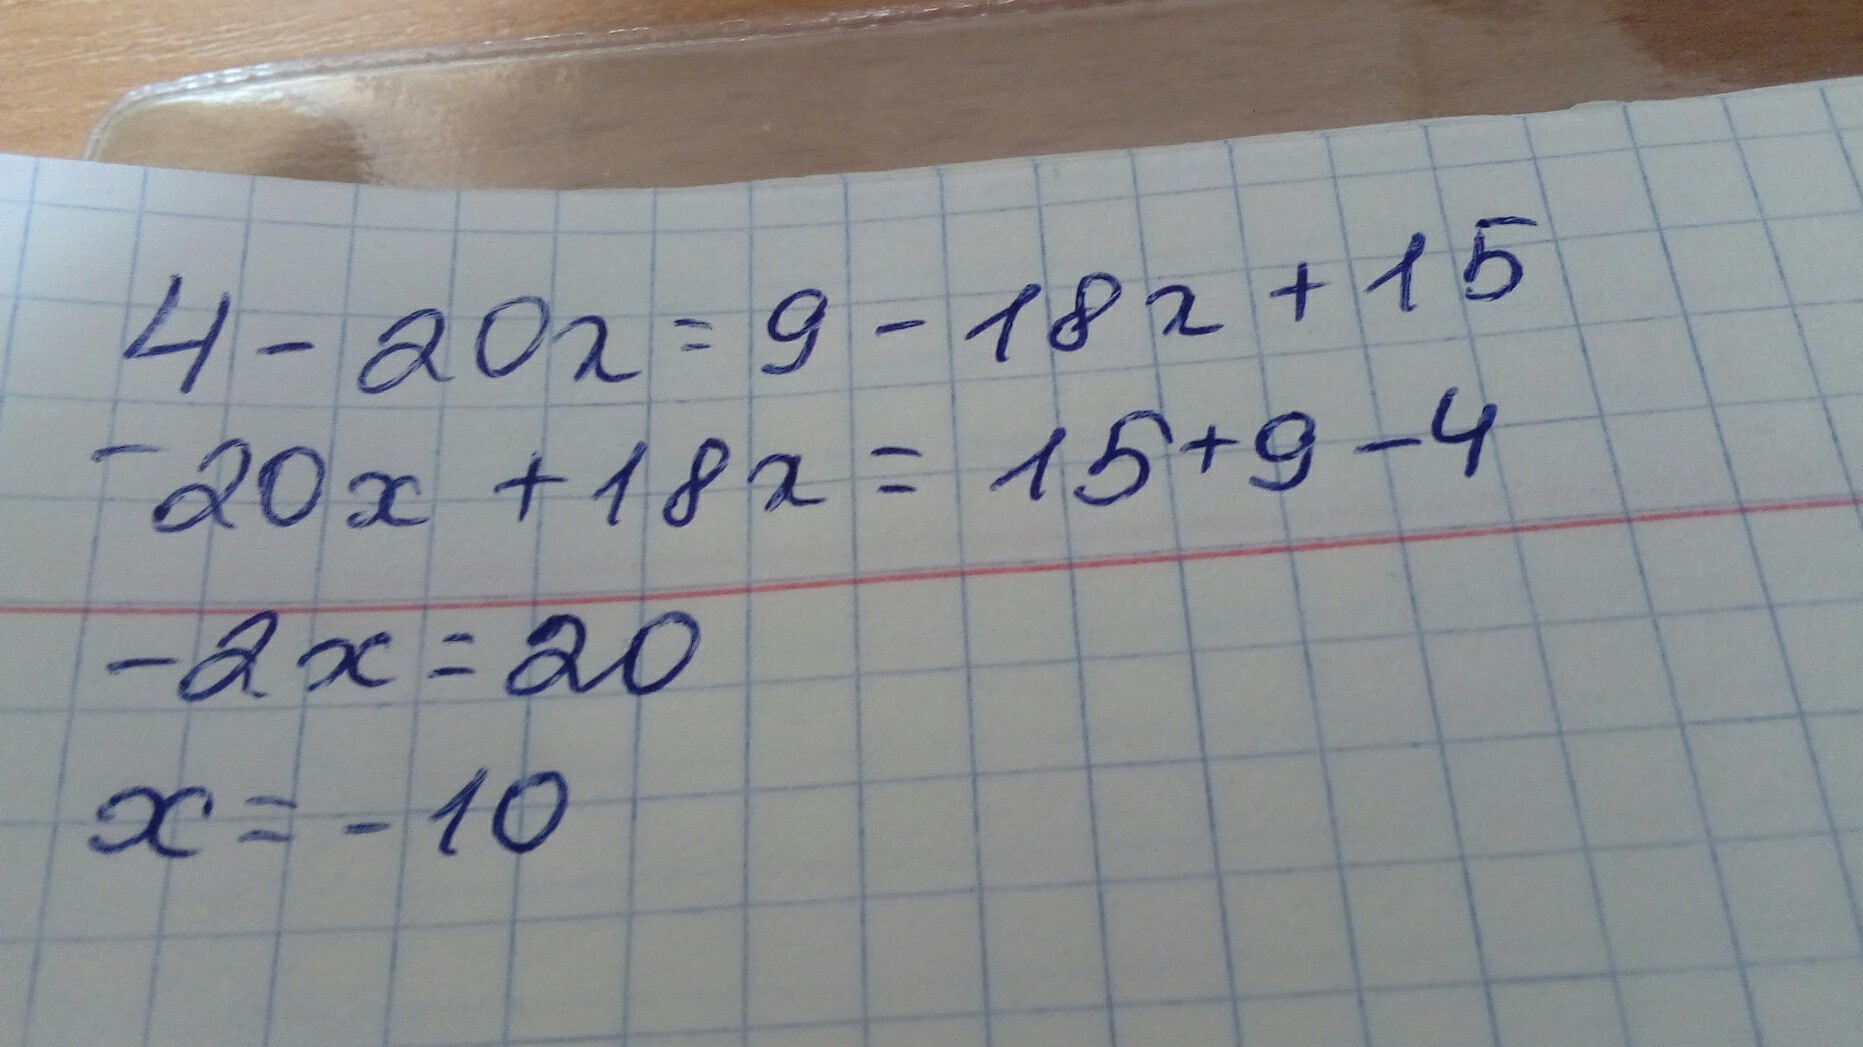 4 - 20x = 9 - 18x + 15
-20x + 18x = 15 + 9 - 4
-2x = 20
x = -10